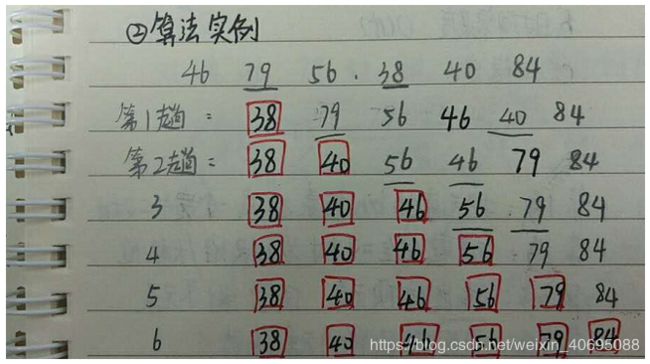 ②算法实例
46 79 56 . 38 40 84
第1趟: 38 79 56 46 40 84
第2趟= 38 40 56 46 79 84
3 38 40 46 56 79 84
4 38 40 46 56 79 84
5 38 40 46 56 79 84
6 38 40 46 56 79 84
https://blog.csdn.net/weixin_40695088